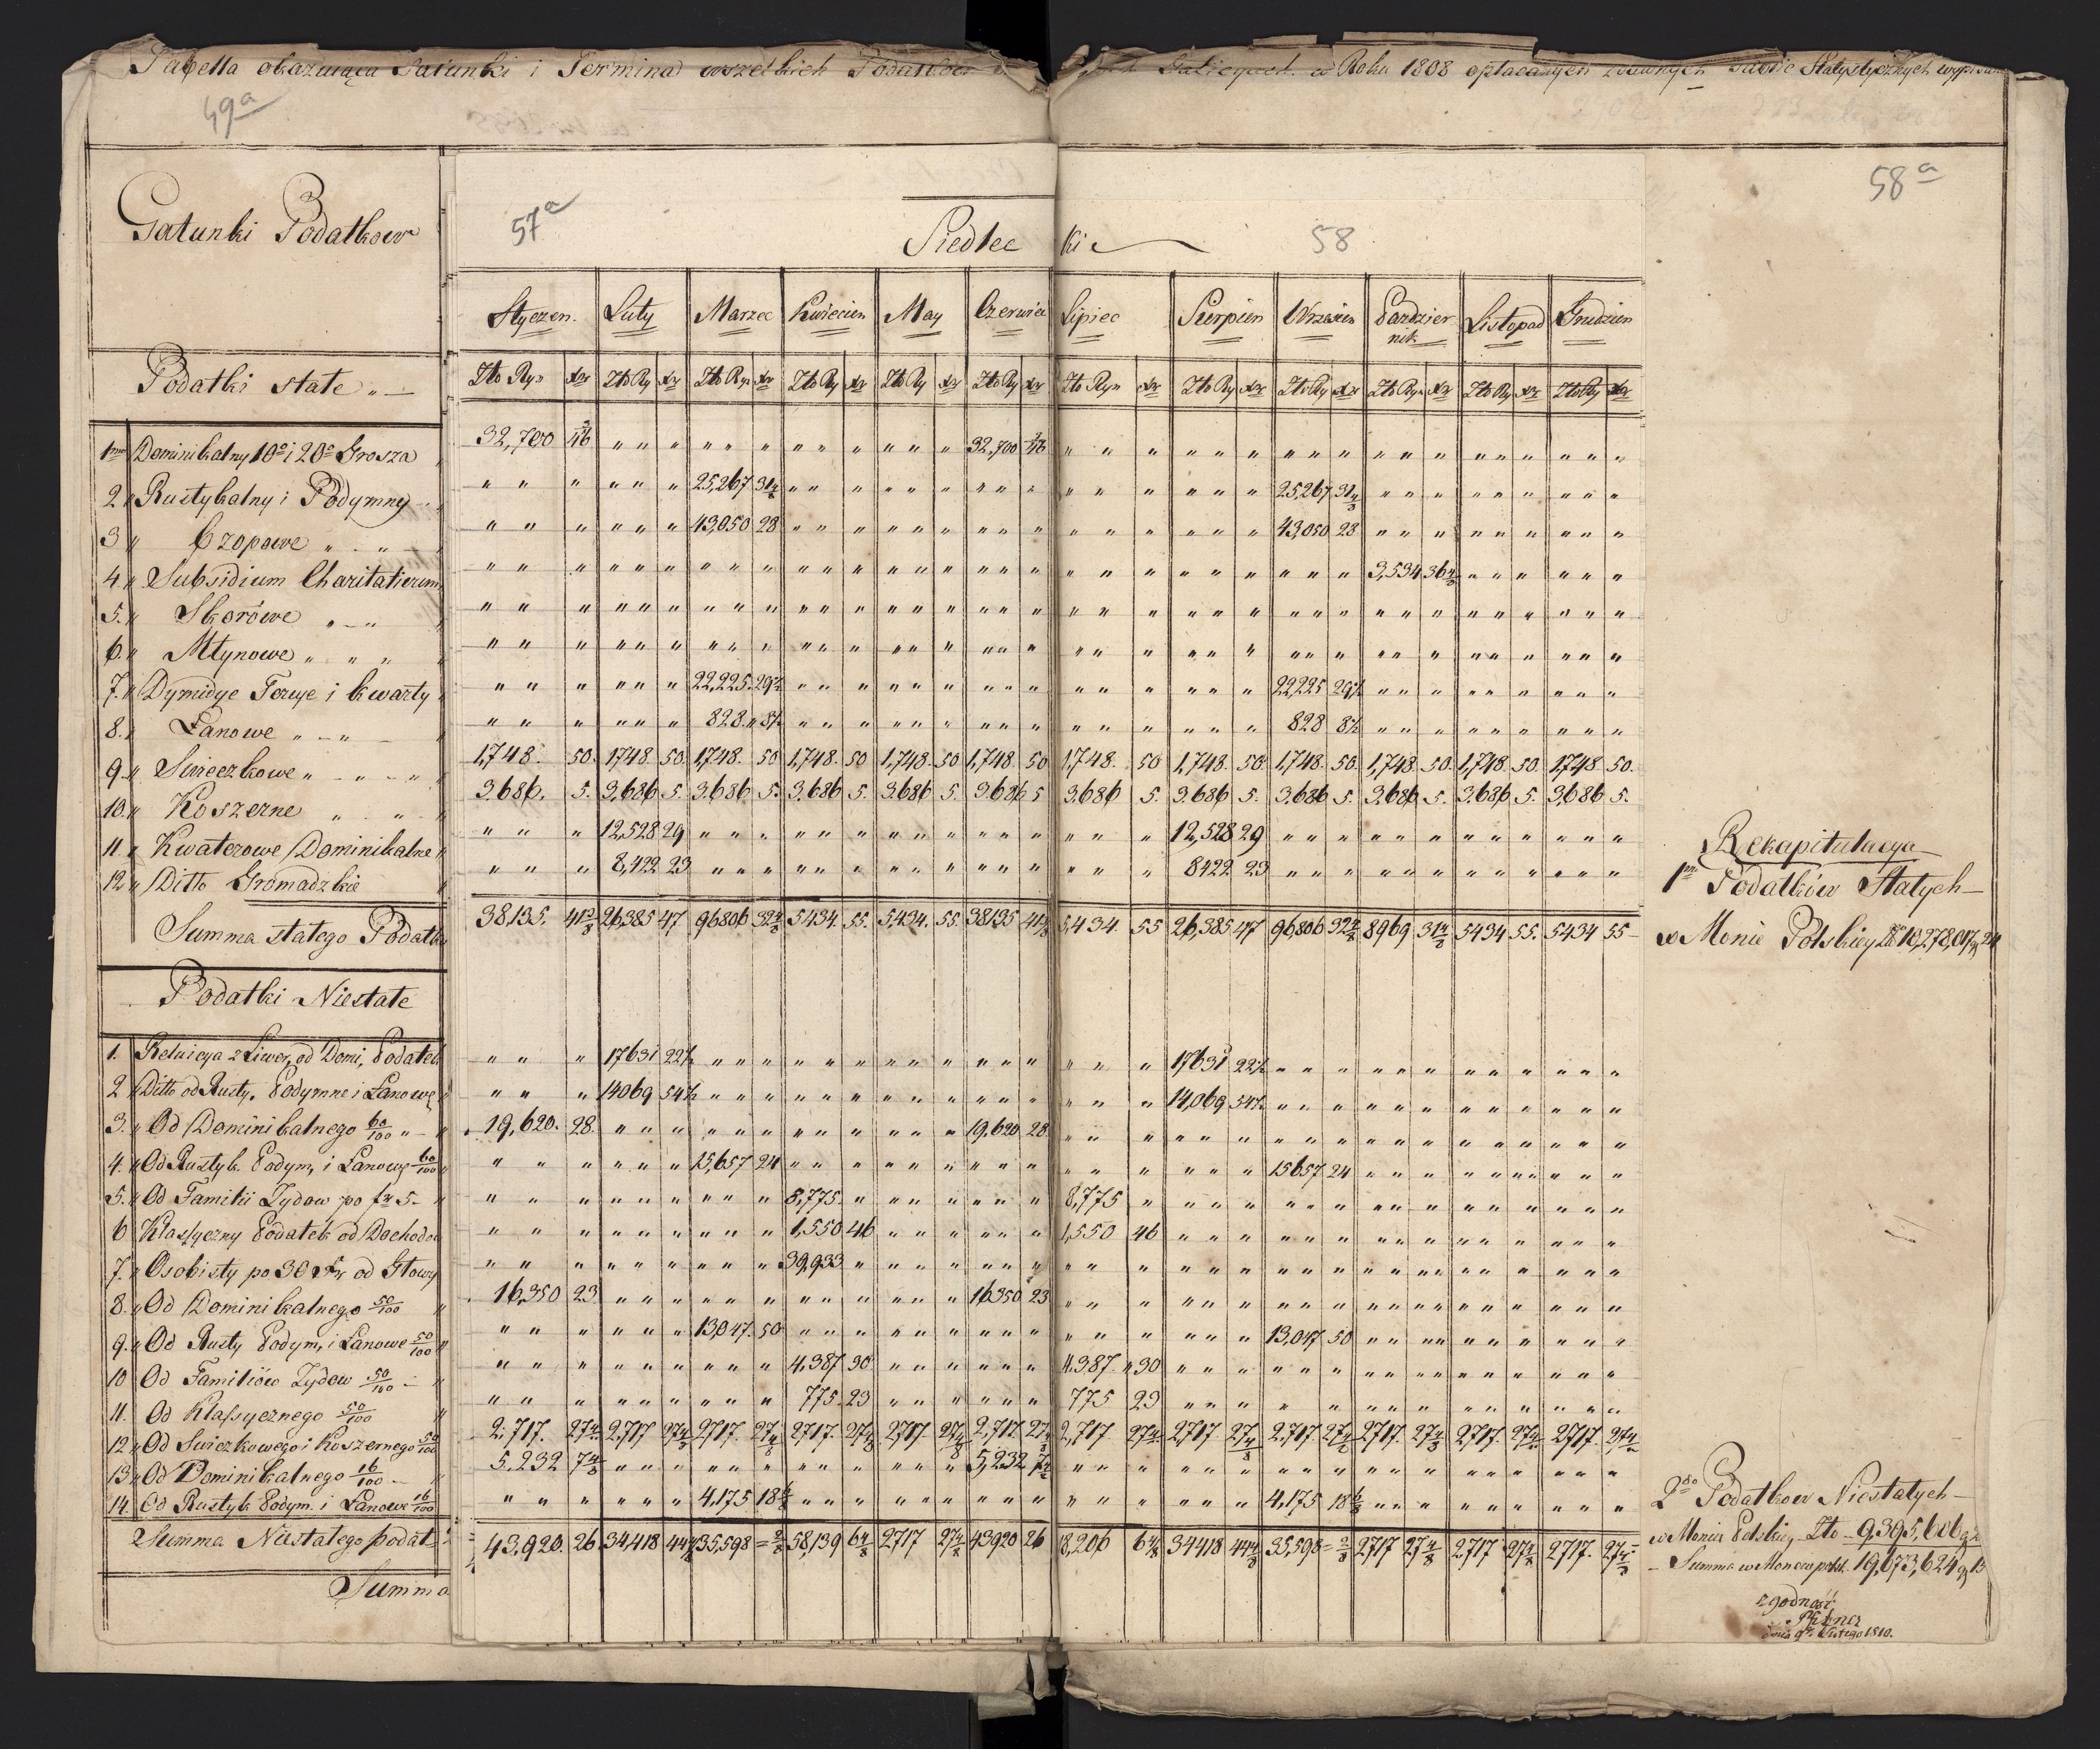 Tabella okazuiąca Gatunki i Termina wszelkich Podatkow
Galicyach w Roku 1808 opłacanych Statystycznych
49a
57a
58
58a
Gatunki Podatkow
Siedlec ki
Styczen. Luty Marzec Kwiecien May Czerwiec Lipiec Sierpien Wrzesien Pazdziernik Listopad Grudzien
Zło Ryn Xr Złо Ry Xr Zło Ryn Xr Zło Ry Xr Zło Ry Xr Zło Ry Xr Zło Ryn Xr Zło Ry Xr Zło Ry Xr Zło Ryn Xr Zło Ry Xr Zło Ry Xr
Podatki stałe
1mo Dominikalny 10o i 20o Grosza 32,700 32,700
2 Rustykalny i Podymny 25,267 31 4/8 25,267 31 4/8
3 Czopowe 43,050 28 43,050 28
4 Subsidium Charitativum 3,534 36 4/8
5. Skorówe
6. Młynowe
7. Dymidye Teruye i kwarty 22,225. 29 4/8 22,225 29 4/8
8. Łanowe 828. 8 4/8 828 8 4/8
9. Swieczkowe 1,748. 50. 1748. 50. 1,748. 50 1,748. 50 1,748. 50 1,748. 50 1,748. 50 1,748. 50. 1,748. 50. 1,748. 50. 1,748. 50. 1,748 50.
10. Koszerne 3.686. 5. 3,686 5. 3.686 5. 3.686 5. 3.686 5. 3686 5 3.686 5. 3.686 5. 3,686 5. 3,686 5. 3.686 5. 3,686 5.
11. Kwaterowe Dominikalne 12,528 29 12,528 29
12 Ditto Gromadzkie 8,422 23 8422 23
Summa stałego Podatku 38,135. 41 26,385 47 96806 32 4/8 5434. 55. 5,434. 55. 38135 41 5,434 55 26,385 47 96,806 32 4/8 8969 31 4/8 5434 55. 5434 55
Rekapitulacya
1mo Podatków Stałych
w Monie Polskiey Zło 10,278,017 24
Podatki Niestałe
1. Reluicya z Liwer, od Domi, Podatek 17631 22 4/8 17,631 22 4/8
2 Ditto od Rusty. Podymne i Łanowe 14069 54 4/8 14,069 54 4/8
3. Od Dominikalnego 60/100 19,620. 28 19,620 28
4. Od Rustyk. Podym, i Łanowe 60/100 15,657 24 15657 24
5. Od Familii Zydow po fr 5 8,775. 8,775
6 Klassyczny Podatek od Dochodo 1,550 46 1,550 46
7. Osobisty po 30 Xr od Głowy 39,933
8. Od Dominikalnego 50/100 16,350 23 16350 23
9. Od Rusty Podym, i Łanowe 50/100 13,047. 50 13,047 50
10 Od Familiów Zydow 50/100 4,387 30 4.387. 30
11. Od Klassycznego 50/100 775. 23 775 23
12 Od Swieczkowego i Koszernego 50/100 2,717. 27 4/8 2,717 27 4/8 2717. 27 4/8 2717. 27 4/8 2717 27 4/8 2,717 27 4/8 2,717 27 4/8 2,717 27 4/8 2.717 27 4/8 2717. 27 4/8 2,717. 27 4/8 2717. 27 4/8
13 Od Dominikalnego 16/100 5.232 7 4/8 5,232 7 4/8
14. Od Rustyk Podym. i Łanowe 16/100 4,175 18 6/8 4,175 18 6/8
Summa Niestałego podat 43,920. 26 34,418 44 4/8 35,598 = 2/8 58,139 6 4/8 2717 27 4/8 43920 26 18,206 6 4/8 34418 44 4/8 35,598 = 2/8 2717 27 4/8 2,717 27 4/8 2717. 27 4/8
Summa
2do Podatkow Niestałych
w Monie Polskiey Zło 9,395,606
Summa w Monecie 19,673,624 g 13
zgodność
dnia Lutego 1810.